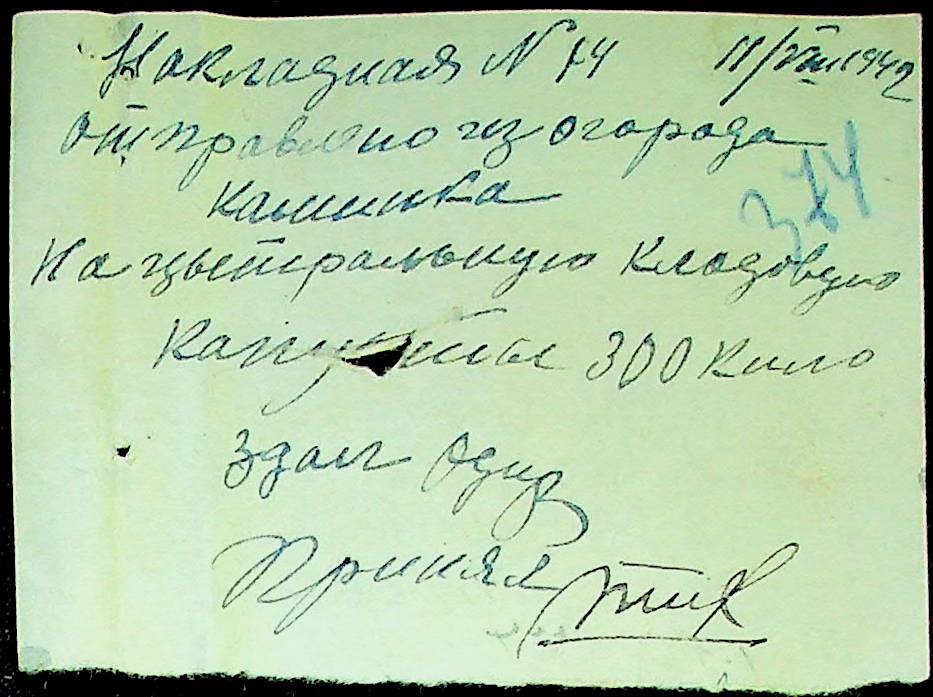 Накладная N 14 11/VIII 1942
отправлено из огорода
374
На центральную кладовую
Капусты 300 кило
Здал
Принял